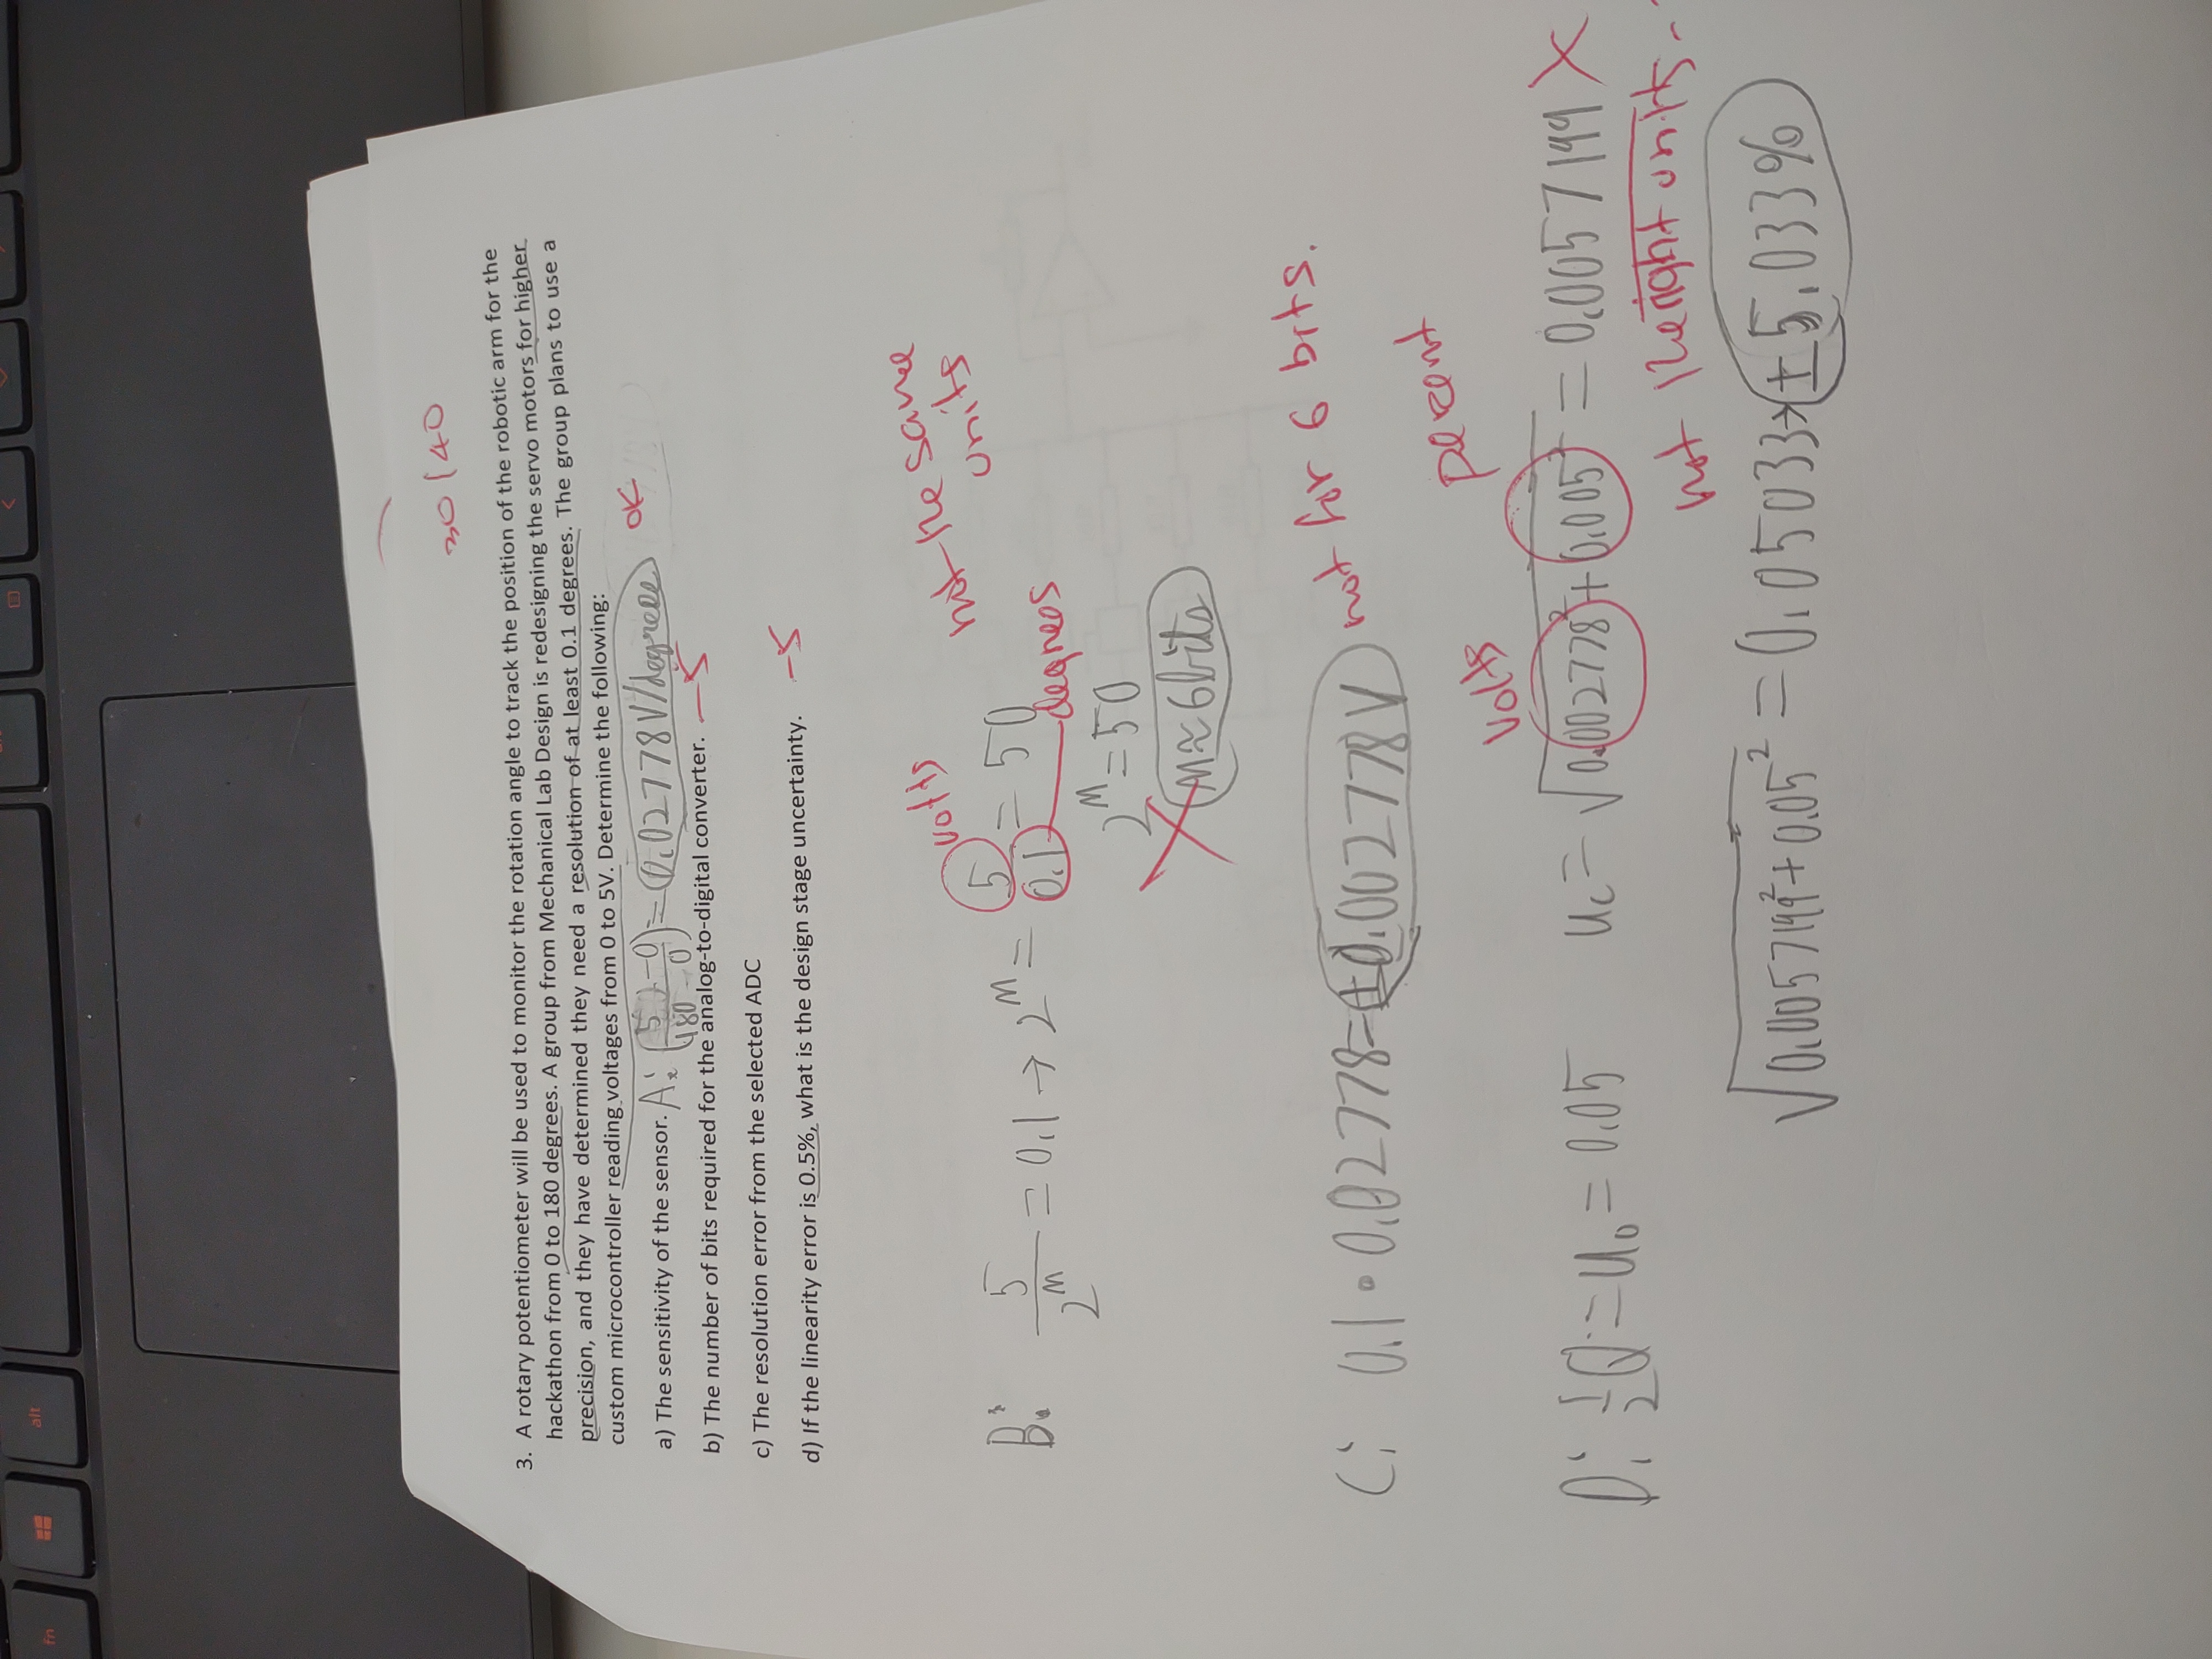 30/40
3. A rotary potentiometer will be used to monitor the rotation angle to track the position of the robotic arm for the
hackathon from 0 to 180 degrees. A group from Mechanical Lab Design is redesigning the servo motors for higher
precision, and they have determined they need a resolution of at least 0.1 degrees. The group plans to use a
custom microcontroller reading voltages from 0 to 5V. Determine the following:
a) The sensitivity of the sensor. A: (5-0/180-0) = 0.02778V/degrees OK
b) The number of bits required for the analog-to-digital converter. -5
c) The resolution error from the selected ADC
d) If the linearity error is 0.5%, what is the design stage uncertainty. -5
volts not the same
units
B: 5/2^M = 0.1 → 2^M = 5/0.1 = 50
degrees
2^M = 50
X M≈6bits
C: 0.1 • 0.02778 = ±0.002778V not for 6 bits.
volts percent
D: 1/2 Q = u0 = 0.05 uc = √0.002778² + 0.005² = 0.0057199 X
not the right units
√0.0057199² + 0.05² = 0.05033 → ±5.033%
fn
alt